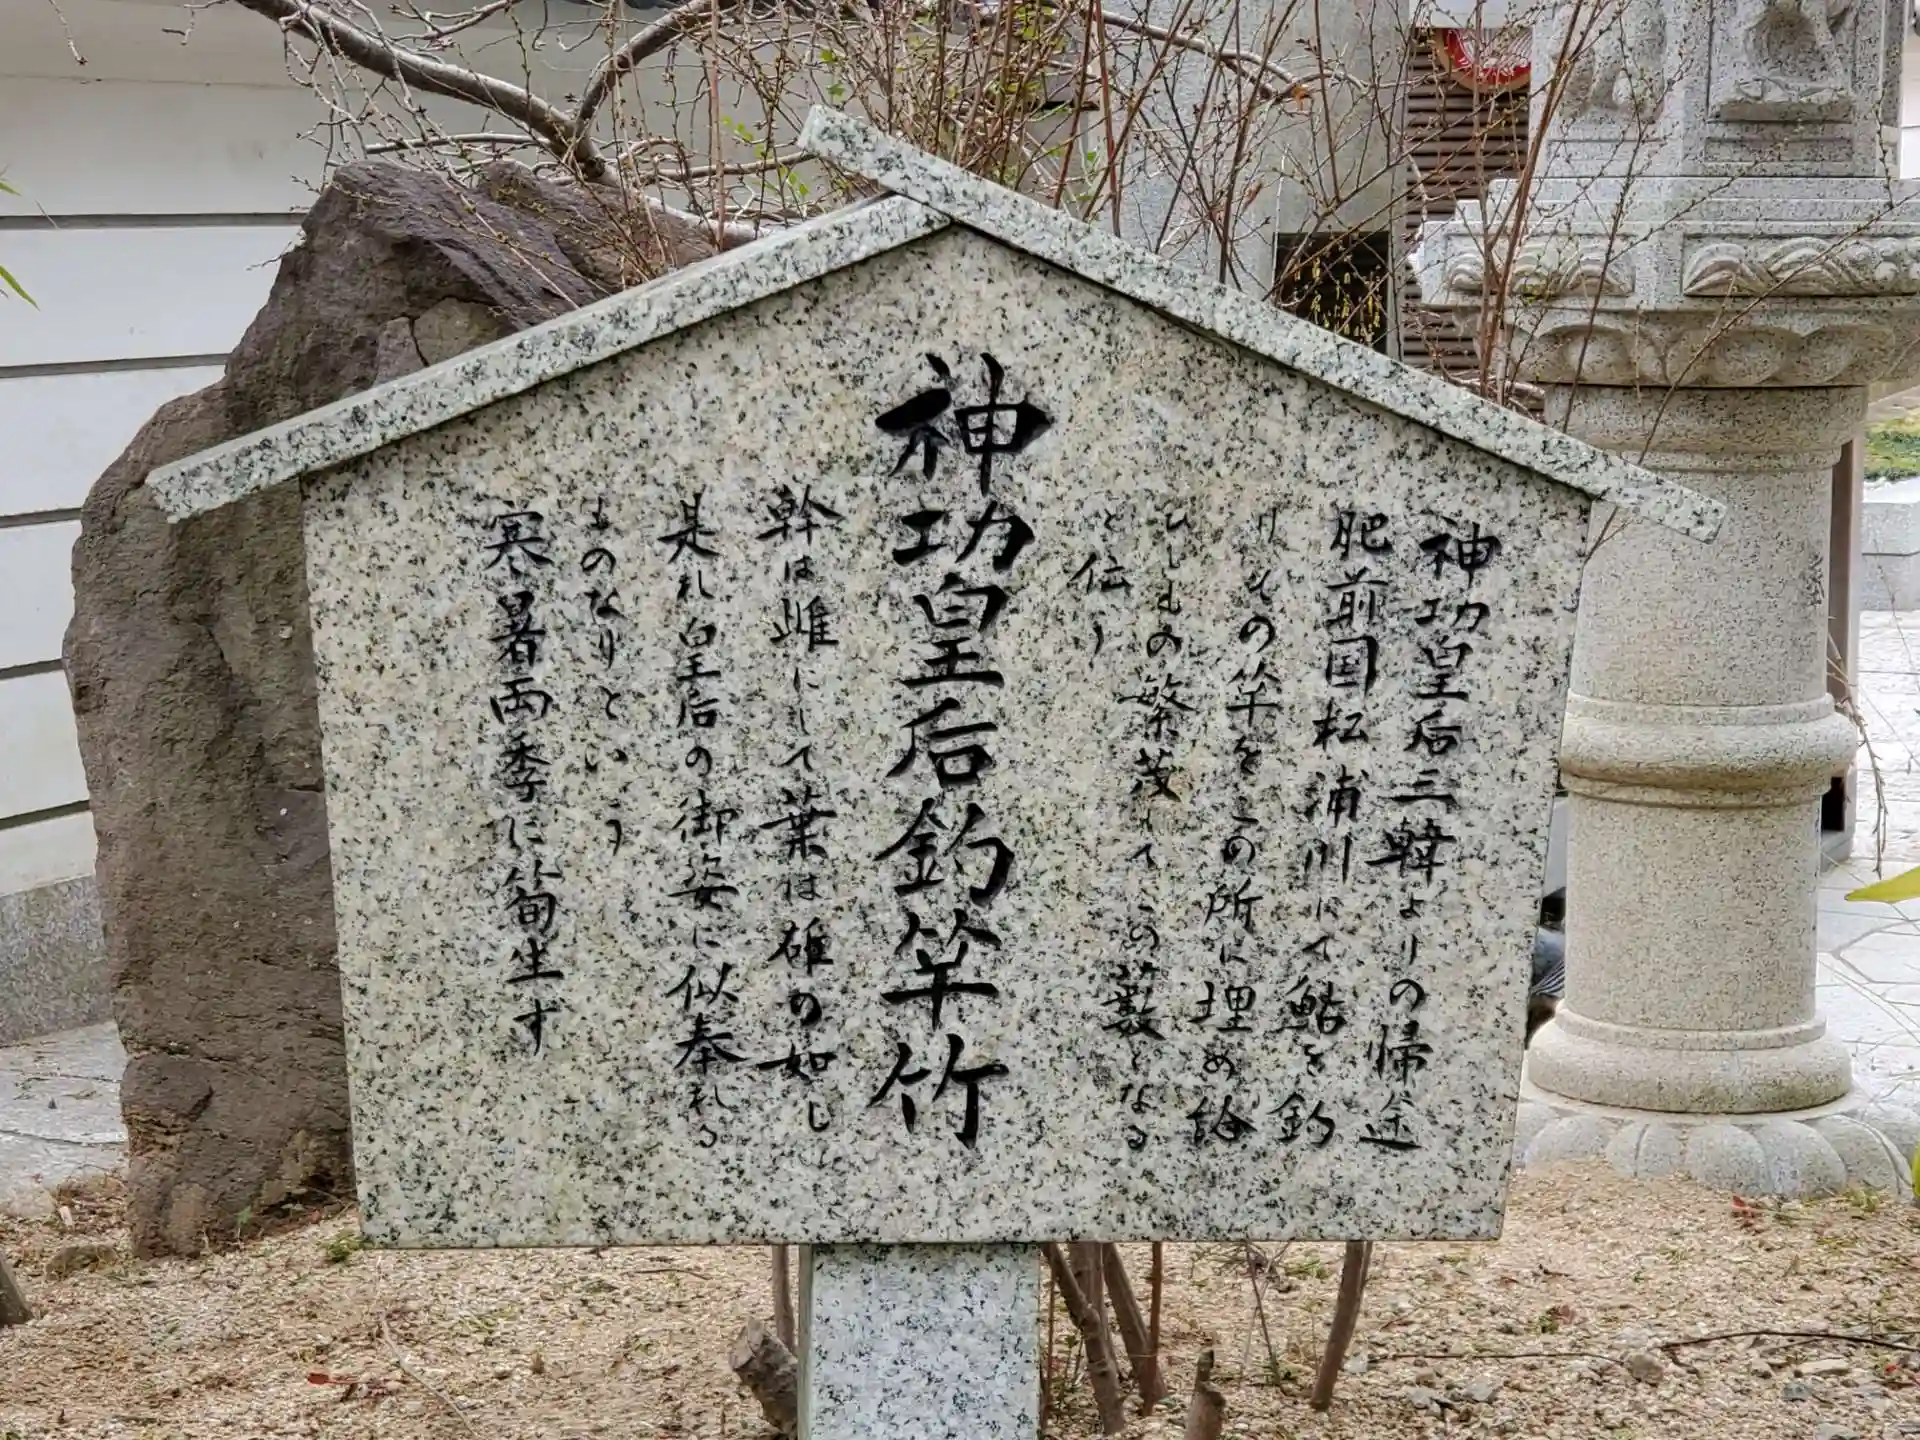 神功皇后三韓よりの帰途
肥前国松浦川にて鮎を釣
けるその竿をこの所に埋め給
ひしもの繁茂してこの薮となる
と伝う
神功皇后釣竿竹
幹は雌にして葉は雄の如し
是れ皇后の御姿に似奉れる
ものなりという
寒暑両季に筍生ず